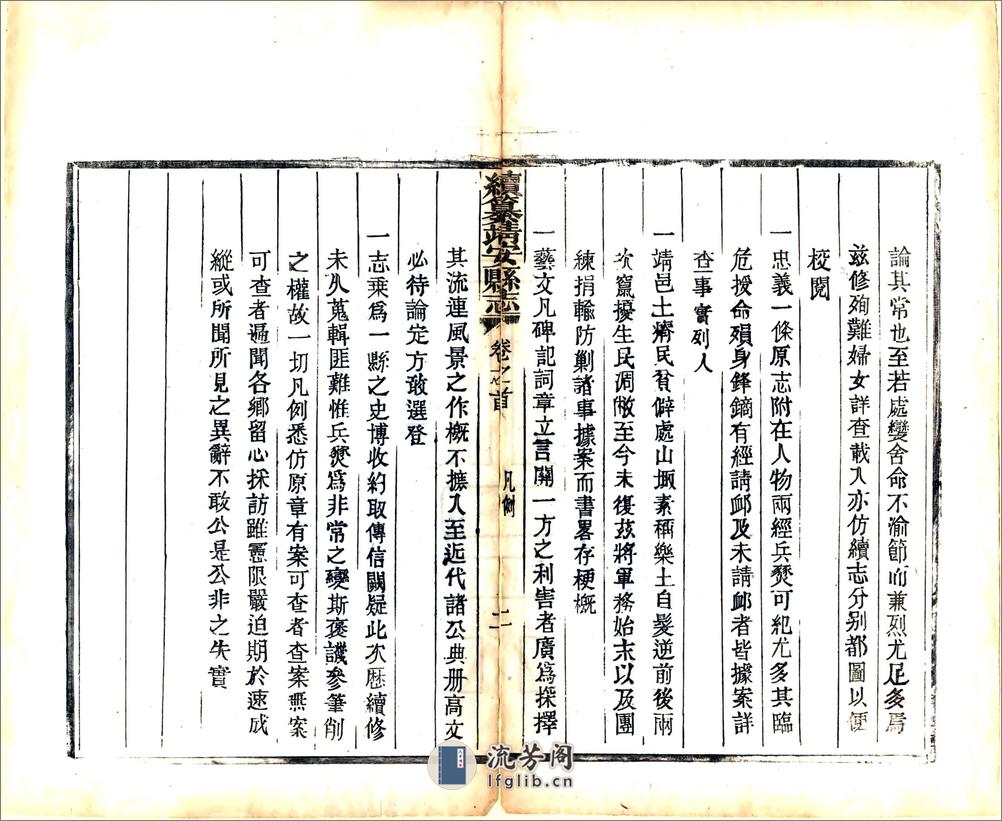 論其常也至若處變舍命不渝節而兼烈尤足多焉
兹修殉難婦女詳查載入亦仿續志分别都圖以便
校閱
一忠義一條原志附在人物兩經兵燹可紀尤多其臨
危授命殞身鋒鏑有經請䘏及未請䘏者皆據案詳
查事實列人
一靖邑土瘠民貧僻處山陬素稱樂土自髮逆前後兩
次竄擾生民凋敝至今未復兹將軍務始末以及團
練捐輸防剿諸事據案而書畧存梗概
一藝文凡碑記詞章立言關一方之利害者廣爲採擇
續纂靖安縣志
卷之首
凡例
二
其流連風景之作概不摭入至近代諸公典册高文
必待論定方敢選登
一志乘爲一縣之史博收約取傳信闕疑此次歷續修
未久蒐輯匪難惟兵燹爲非常之變斯褒譏參筆削
之權故一切凡例悉仿原章有案可查者查案無案
可查者遍聞各鄉留心採訪雖憲限嚴迫期於速成
縱或所聞所見之異辭不敢公是公非之失實
流芳阁
lfglib.cn